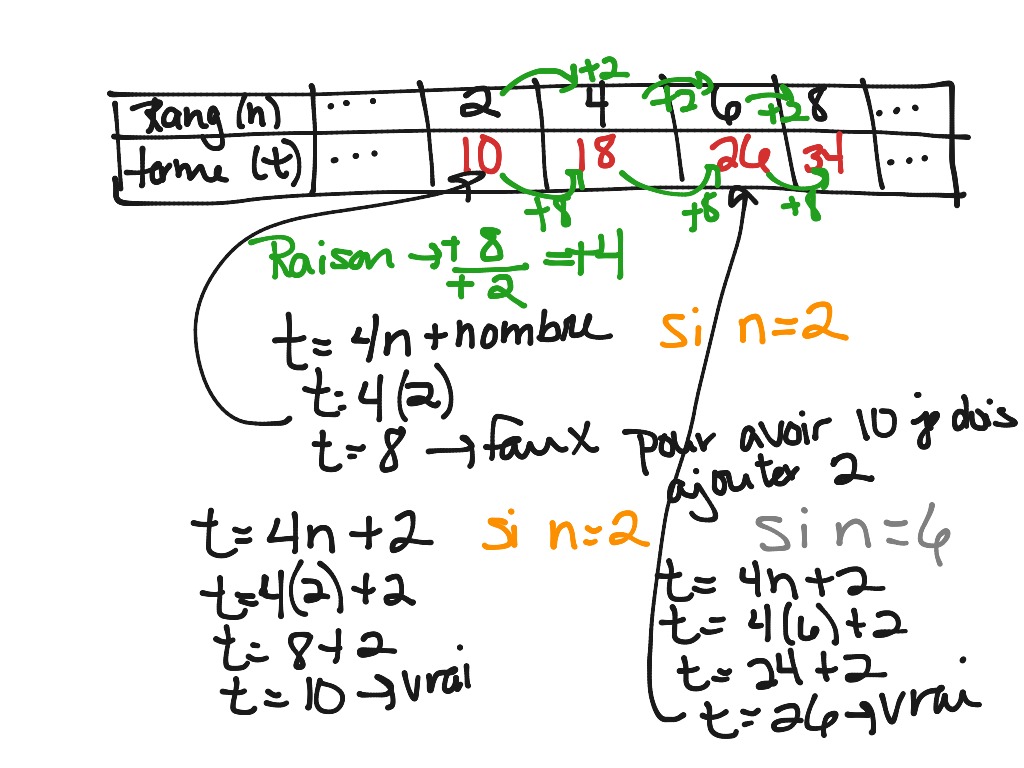 +2
Rang (n) ... 2 4 +2 6 +2 8 ...
terme (t) ... 10 18 26 34 ...
+8 +8 +8
Raison → +8/+2 = +4
t = 4n + nombre si n=2
t = 4(2)
t = 8 → faux Pour avoir 10 je dois
ajouter 2
t = 4n + 2 si n=2 si n=6
t = 4(2) + 2 t = 4n + 2
t = 8 + 2 t = 4(6) + 2
t = 10 → vrai t = 24 + 2
t = 26 → vrai